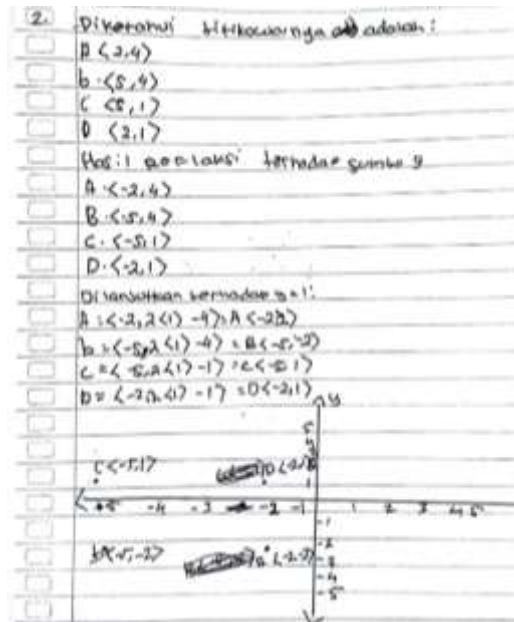 2. Diketahui titik awarnya adalah :
A <2,4>
b. <5,4>
C <5,1>
D <2,1>
Hasil terhadap sumbu y
A. <-2,4>
B. <-5,4>
C. <-5,1>
D. <-2,1>
Dilanjutkan terhadap y = 1:
A = <-2,2<1> -4> = A <-2
b = <-5,2<1> -4> = B <-5,-2>
C = <-5,2<1> -1> = C <-5,1>
D = <-2,2<1> -1> = D <-2,1>
y
C <-5,1> D
1
-5 -4 -3 -2 -1 1 2 3 4 5
-1
-2
b <-5,-2> <-2,-2> -3
-4
-5